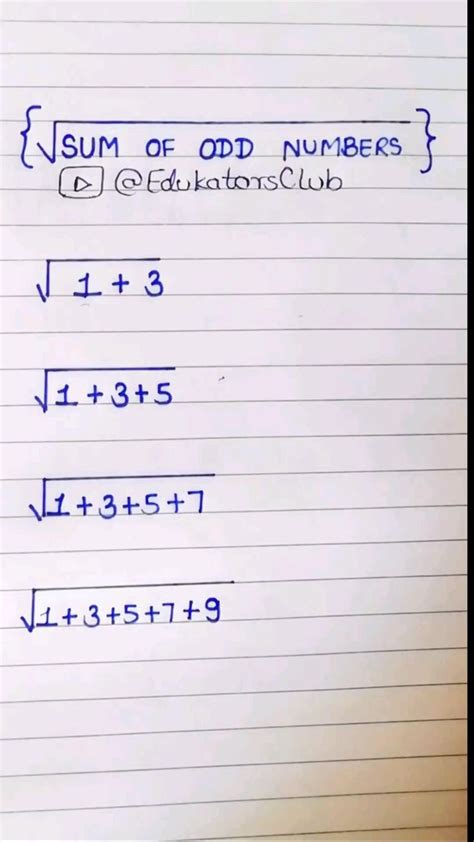 {√SUM OF ODD NUMBERS}
@EdukatorsClub
√1 + 3
√1 + 3 + 5
√1 + 3 + 5 + 7
√1 + 3 + 5 + 7 + 9